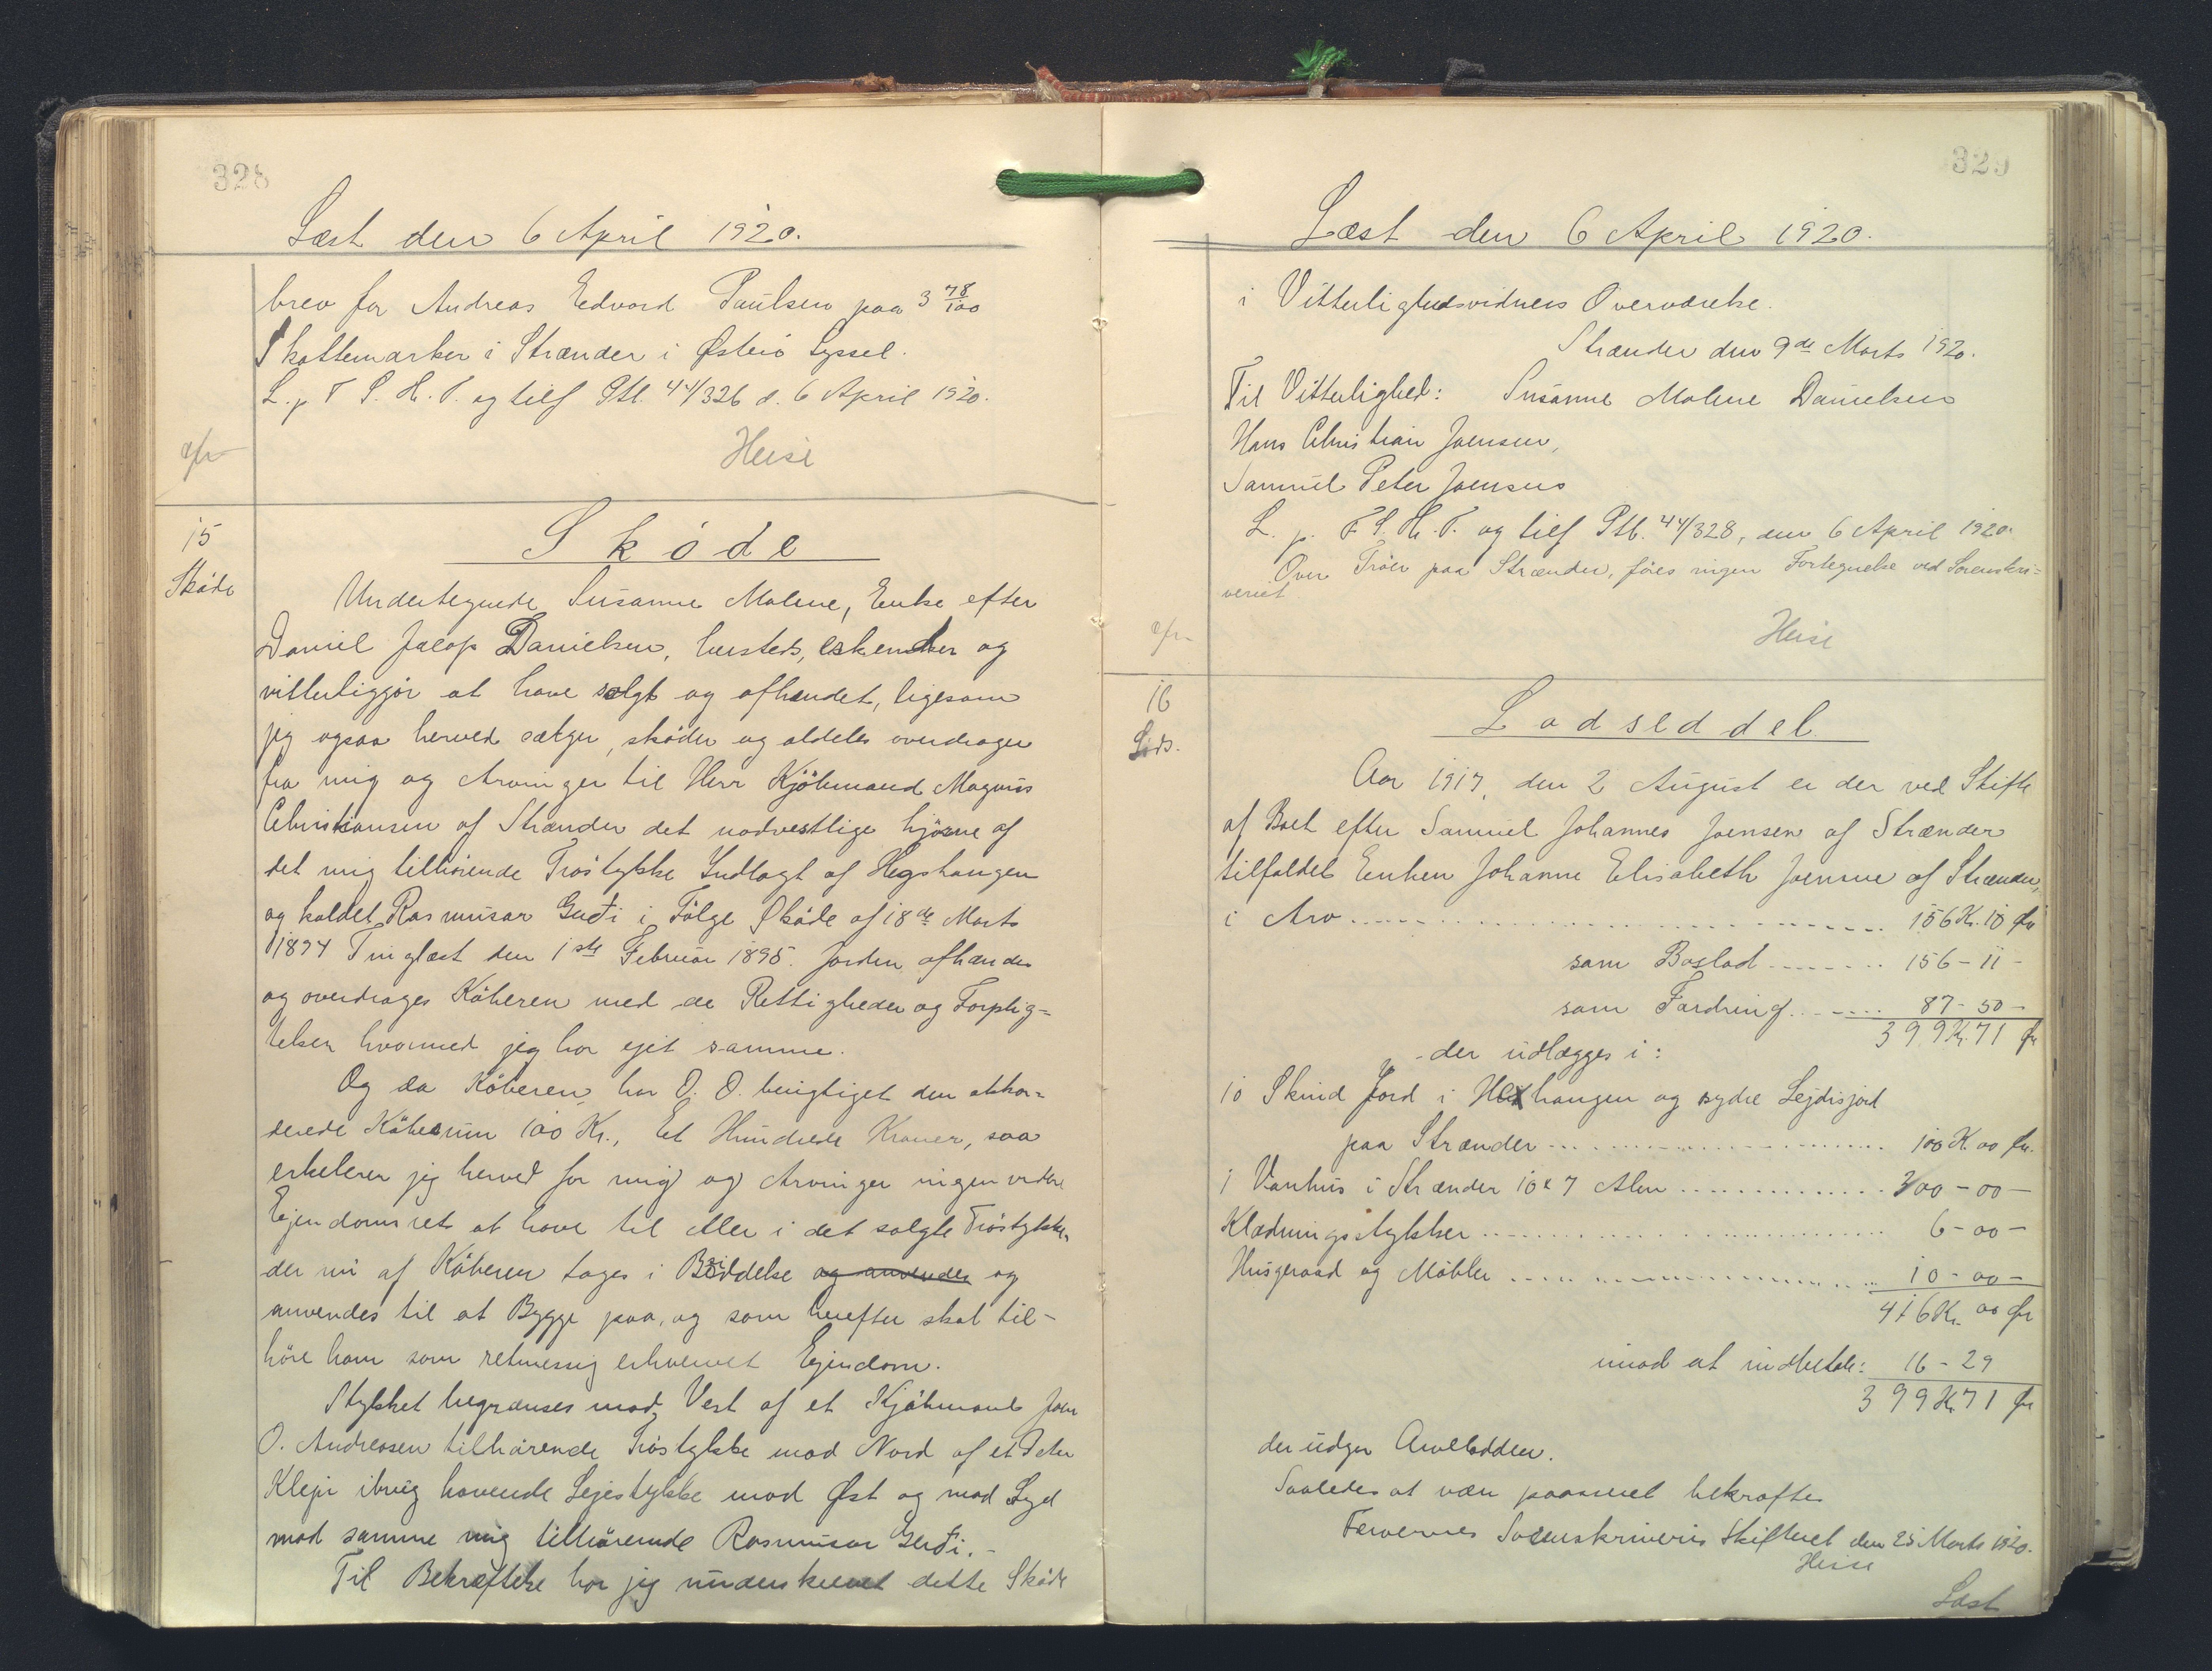 328
Læst den 6 April 1920.
brev for Andreas Edvard Paulsen paa 3 78/100
Skattemarker i Strænder i Østerö Syssel.
L. p. F. S. H. T. og tilf Ptb. 44/326 d. 6 April 1920.
Heise
15
Skøde
Skøde
Undertegnede Susanne Malene, Enke efter
Daniel Jacop Danielsen, tilsteds, erkender og
vitterliggør at have solgt og afhændet, ligesom
jeg ogsaa herved sælger, skøder og aldeles overdrager
fra mig og Arvinger til Herr Kjøbmand Magnus
Christiansen af Strænder det nordvestlige hjørne af
det mig tilhørende Trøstykke Indlagt af Hegshaugen
og kaldet Rasmusar Gerði i Følge Skøde af 18de Marts
1894 Tinglæst den 1ste Februar 1895. Jorden afhændes
og overdrages Køberen med de Rettigheder og Forplig=
telser hvormed jeg har ejet samme.
Og da Køberen har D. D. berigtiget den akkor=
derede Købesum 100 Kr., Et Hundrede Kroner, saa
erkelerer jeg herved for mig og Arvinger ingen videre
Ejendomsret at have til eller i det solgte Trøstykke,
der nu af Køberen tages i Besiddelse og anvendes og
anvendes til at Bygge paa, og som herefter skal til-
høre ham som retmessig erhvervet Ejendom.
Stykket begrænses mod Vest af et Kjøbmand Joen
O. Andreasen tilhørende Trøstykke mod Nord af et Peter
Klejn ibrug havende Lejestykke mod Øst og mod Syd
mod samme mig tilhørende Rasmusar Gerði. -
Til Bekræftelse har jeg underskrevet dette Skøde
329
Læst den 6 April 1920.
i Vitterlighedsvidners Overværelse.
Strænder den 9de Marts 1920.
Til Vitterlighed: Susanne Malene Danielsen
Hans Christian Joensen,
Samuel Peter Joensen
L. p. F. S. H. T. og tilf Ptb. 44/328, den 6 April 1920.
Over Trøer paa Strænder, føres ingen Fortegnelse ved Sorenskri=
veriet
Heise
16
Lods.
Lodseddel
Aar 1917, den 2 August er der ved Skifte
af Boet efter Samuel Johannes Joensen af Strænder
tilfaldet Enken Johanne Elisabeth Joensen af Strænder,
i Arv 156 Kr. 10 Ør
som Boslod 156 - 11 -
som Fordring 87 - 50 -
399 Kr. 71 Ør
- der udlægges i:
10 Skind Jord i Hexhaugen og sydre Lejdisjord
paa Strænder 100 K. 00 Ør.
1 Vaanhus i Strænder 10 x 7 Alen 300 - 00 -
Klædningsstykker 6 - 00 -
Husgeraad og Møbler 10 - 00 -
416 Kr. 00 Ør
imod at indbetale: 16 - 29
399 Kr. 71 Ør
der udgør Arvelodden.
Saaledes at være passeret bekræftes
Færøernes Sorenskriveris Skifteret den 25 Marts 1920.
Heise
Læst